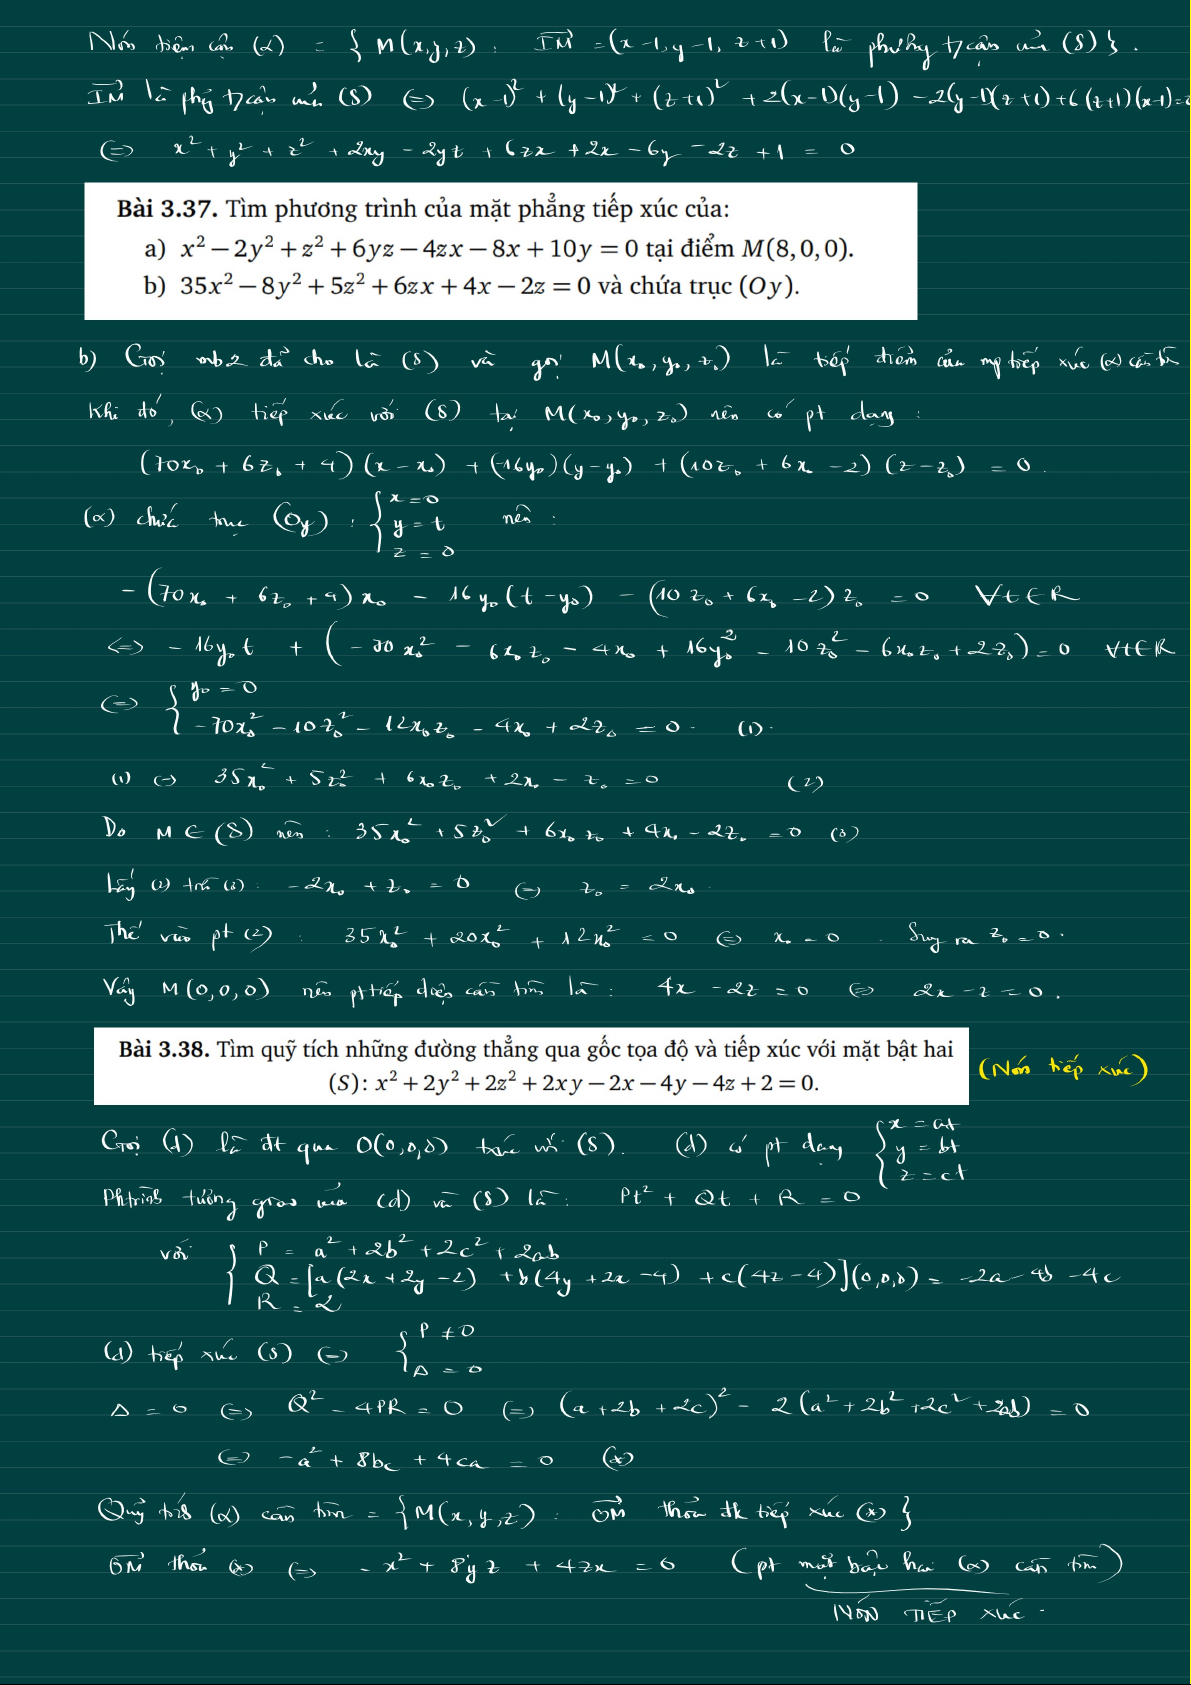 Nón tiệm cận (α) = { M(x,y,z) : IM = (x-1, y-1, z+1) là phương t/cận của (S) }.
IM là phg t/cận của (S) ⇔ (x-1)² + (y-1)² + (z+1)² + 2(x-1)(y-1) - 2(y-1)(z+1) + 6(z+1)(x-1) =
⇔ x² + y² + z² + 2xy - 2yz + 6zx + 2x - 6y - 2z + 1 = 0
Bài 3.37. Tìm phương trình của mặt phẳng tiếp xúc của:
a) x² − 2y² + z² + 6yz − 4zx − 8x + 10y = 0 tại điểm M(8,0,0).
b) 35x² − 8y² + 5z² + 6zx + 4x − 2z = 0 và chứa trục (Oy).
b) Gọi mb2 đã cho là (S) và gọi M(x₀, y₀, z₀) là tiếp điểm của mp tiếp xúc (α) cần tìm
Khi đó, (α) tiếp xúc với (S) tại M(x₀, y₀, z₀) nên có pt dạng :
(70x₀ + 6z₀ + 4)(x - x₀) + (-16y₀)(y - y₀) + (10z₀ + 6x₀ - 2)(z - z₀) = 0.
(α) chứa trục (Oy) : { x = 0 y = t z = 0 nên :
- (70x₀ + 6z₀ + 4)x₀ - 16y₀(t - y₀) - (10z₀ + 6x₀ - 2)z₀ = 0 ∀t ∈ R
⇔ - 16y₀t + (-70x₀² - 6x₀z₀ - 4x₀ + 16y₀² - 10z₀² - 6x₀z₀ + 2z₀) = 0 ∀t ∈ R
⇔ { y₀ = 0
-70x₀² - 10z₀² - 12x₀z₀ - 4x₀ + 2z₀ = 0. (1).
(1) ⇔ 35x₀² + 5z₀² + 6x₀z₀ + 2x₀ - z₀ = 0 (2)
Do M ∈ (S) nên : 35x₀² + 5z₀² + 6x₀z₀ + 4x₀ - 2z₀ = 0 (3)
Lấy (2) trừ (3) : -2x₀ + z₀ = 0 ⇔ z₀ = 2x₀.
Thế vào pt (2) : 35x₀² + 20x₀² + 12x₀² = 0 ⇔ x₀ = 0. Suy ra z₀ = 0.
Vậy M(0,0,0) nên pt tiếp diện cần tìm là : 4x - 2z = 0 ⇔ 2x - z = 0.
Bài 3.38. Tìm quỹ tích những đường thẳng qua gốc tọa độ và tiếp xúc với mặt bật hai
(S): x² + 2y² + 2z² + 2xy − 2x − 4y − 4z + 2 = 0.
(Nón tiếp xúc)
Gọi (d) là đt qua O(0,0,0) txúc với (S). (d) có pt dạng { x = at y = bt z = ct
Phtrình tương giao của (d) và (S) là : Pt² + Qt + R = 0
với { P = a² + 2b² + 2c² + 2ab
Q = [a(2x + 2y - 2) + b(4y + 2x - 4) + c(4z - 4)](0,0,0) = -2a - 4b - 4c
R = 2
(d) tiếp xúc (S) ⇔ { P ≠ 0 Δ = 0
Δ = 0 ⇔ Q² - 4PR = 0 ⇔ (a + 2b + 2c)² - 2(a² + 2b² + 2c² + 2ab) = 0
⇔ -a² + 8bc + 4ca = 0 (*)
Quỹ tích (α) cần tìm = { M(x,y,z) : OM thoả đk tiếp xúc (*) }
OM thoả (*) ⇔ - x² + 8yz + 4zx = 0 (pt mặt bậc hai (α) cần tìm)
NÓN TIẾP XÚC.